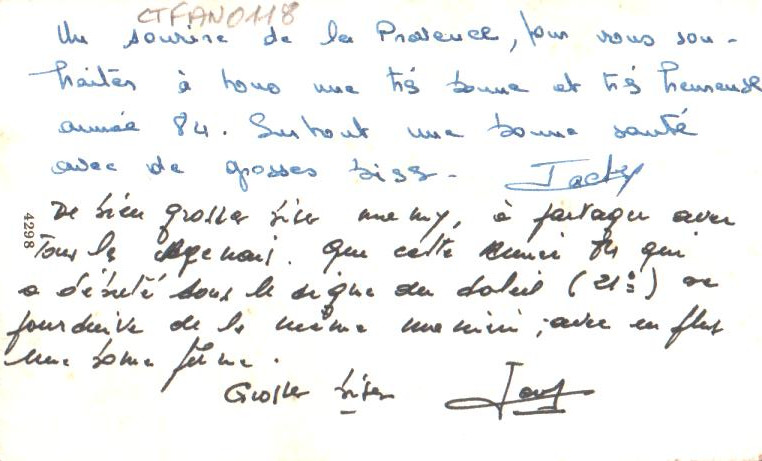 CTFAN0118
Un sourire de la Provence, pour vous sou-
haiter à tous une très bonne et très heureuse
année 84. Surtout une bonne santé
avec de grosses bises.
Jacky
De bien grosses bises mamy, à partager avec
Tous les. Que cette année 84 qui
a débuté sous le signe du soleil (21°) se
poursuive de la même manière, avec en plus
une bonne forme.
Grosses bises
4298